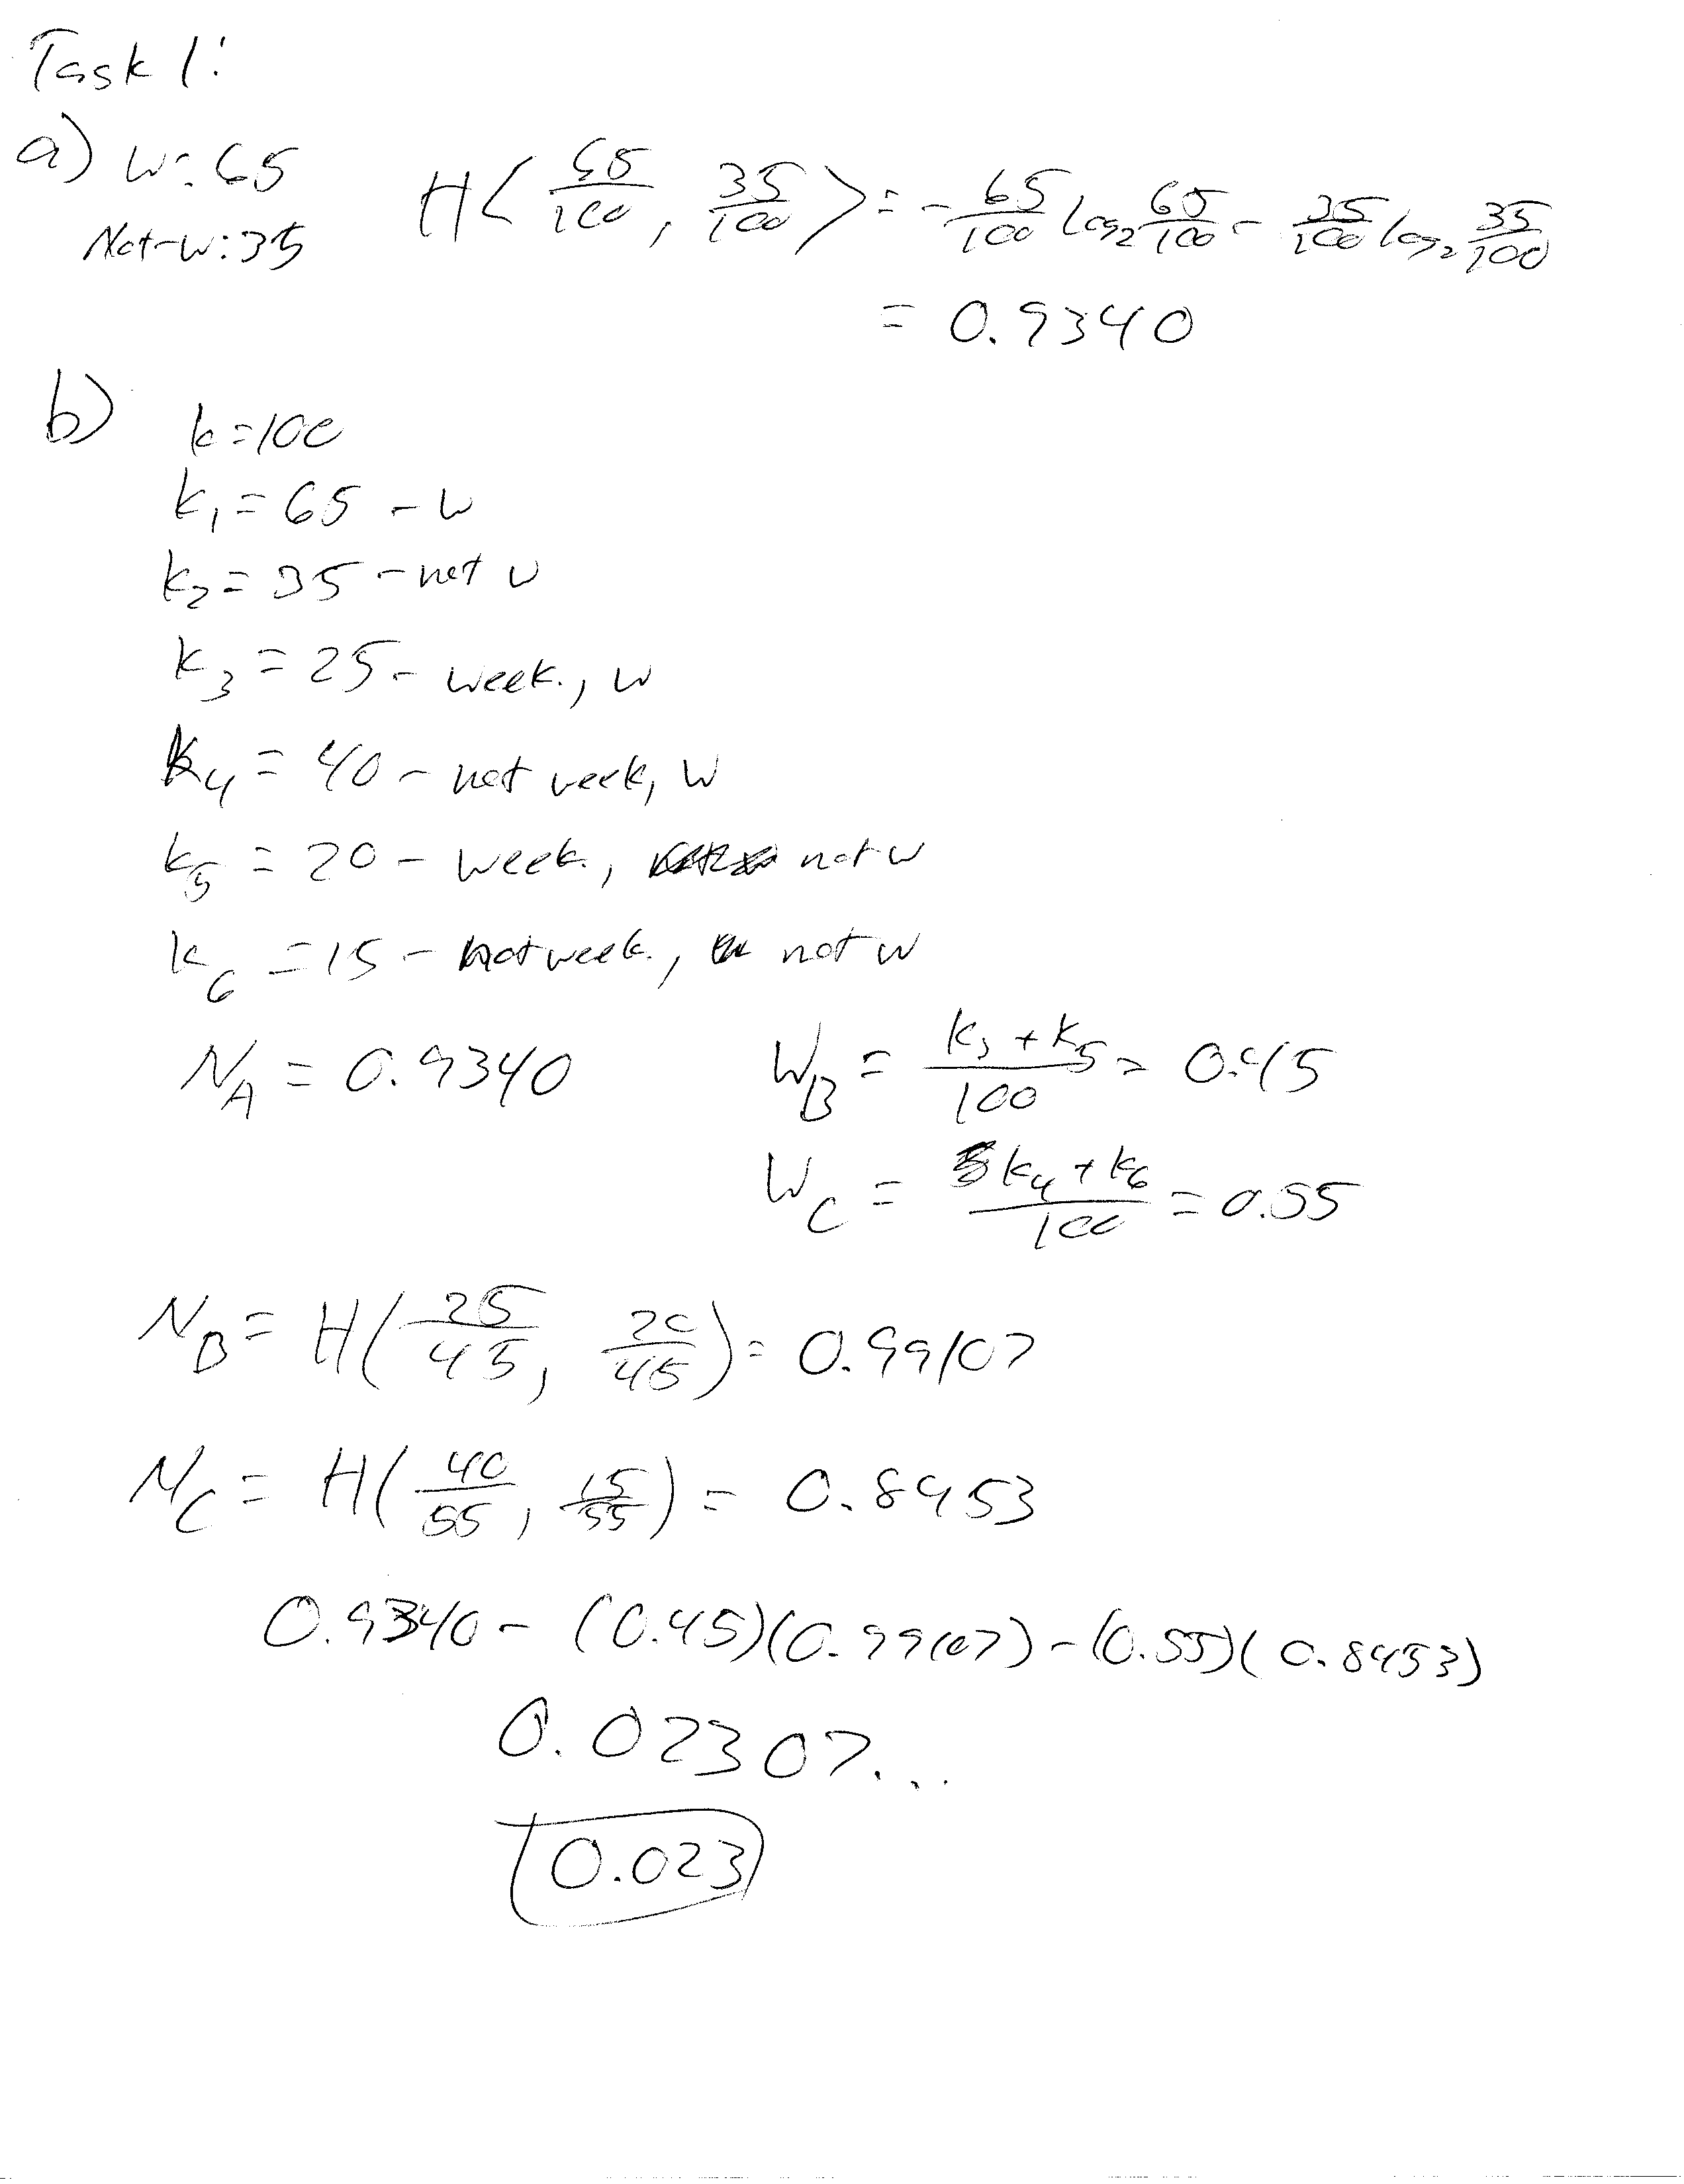 Task 1:
a) W: 65
Not-W: 35
H< 65/100, 35/100 > = - 65/100 log₂ 65/100 - 35/100 log₂ 35/100
= 0.9340
b) k=100
k₁ = 65 - W
k₂ = 35 - not W
k₃ = 25 - week., W
k₄ = 40 - not week, W
k₅ = 20 - week., not W
k₆ = 15 - not week., not W
N_A = 0.9340
W_B = (k₃ + k₅)/100 = 0.45
W_C = (k₄ + k₆)/100 = 0.55
N_B = H( 25/45, 20/45 ) = 0.99107
N_C = H( 40/55, 15/55 ) = 0.8453
0.9340 - (0.45)(0.99107) - (0.55)(0.8453)
0.02307...
0.023